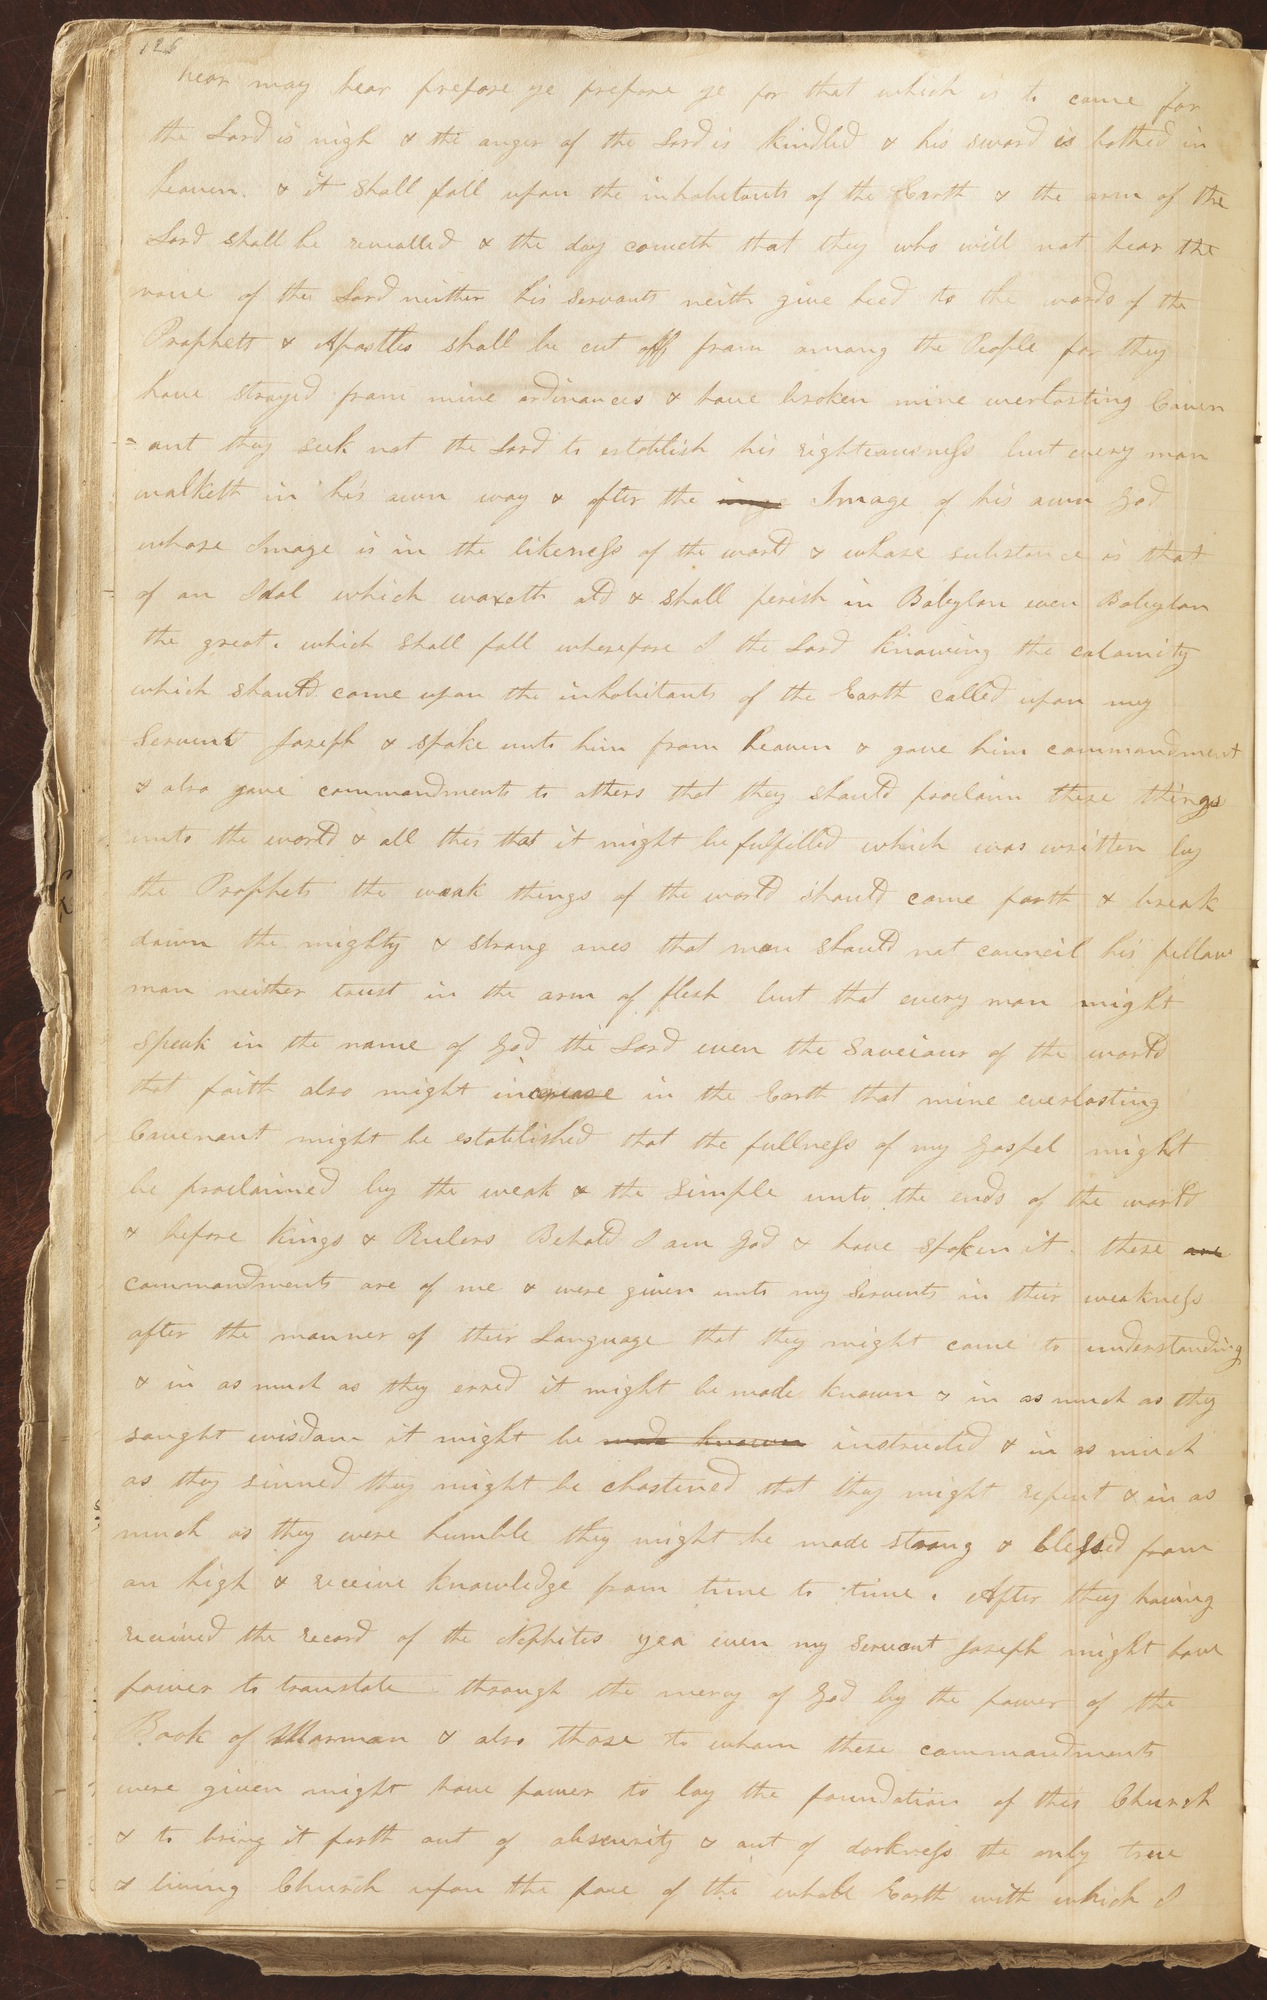 126
hear may hear prepare ye prepare ye for that which is to come for
the Lord is nigh & the anger of the Lord is kindled & his sword is bathed in
heaven. & it shall fall upon the inhabitants of the Earth & the arm of the
Lord shall be revealled & the day cometh that they who will not hear the
voice of the Lord neither his servants neith give heed to the words of the
Prophets & Apostles shall be cut off from among the People for they
have strayed from mine ordinances & have broken mine everlasting Coven
= ant they seek not the Lord to establish his righteousness but every man
walketh in his own way & after the image Image of his own God
whose Image is in the likeness of the world & whose substance is that
of an Idol which waxeth old & shall perish in Babylon even Babylon
the great. which shall fall wherefore I the Lord knowing the calamity
which should come upon the inhabitants of the Earth called upon my
Servent Joseph & spoke unto him from heaven & gave him commandment
& also gave commandments to others that they should proclaim these things
unto the world & all this that it might be fulfilled which was written by
the Prophets the weak things of the world should come forth & break
down the mighty & strong ones that man should not council his fellow
man neither trust in the arm of flesh but that every man might
speak in the name of God the Lord even the Saveiour of the world
that faith also might increase in the Earth that mine everlasting
Covenant might be established that the fullness of my Gospel might
be proclaimed by the weak & the Simple unto the ends of the world
& before Kings & Rulers Behold I am God & have spoken it. these are
commandments are of me & were given unto my Servents in their weakness
after the manner of their Language that they might come to understanding
& in as much as they erred it might be made known & in as much as they
sought wisdom it might be made known instructed & in as much
as they sinned they might be chastened that they might repent & in as
much as they were humble they might be made strong & blessed from
on high & receive knowledge from time to time. After they having
received the record of the Nephites yea even my Servent Joseph might have
power to translate through the mercy of God by the power of the
Book of Mormon & also those to whom these commandments
were given might have power to lay the foundation of this Church
& to bring it forth out of obscurity & out of darkness the only true
& living Church upon the face of the whole Earth with which I